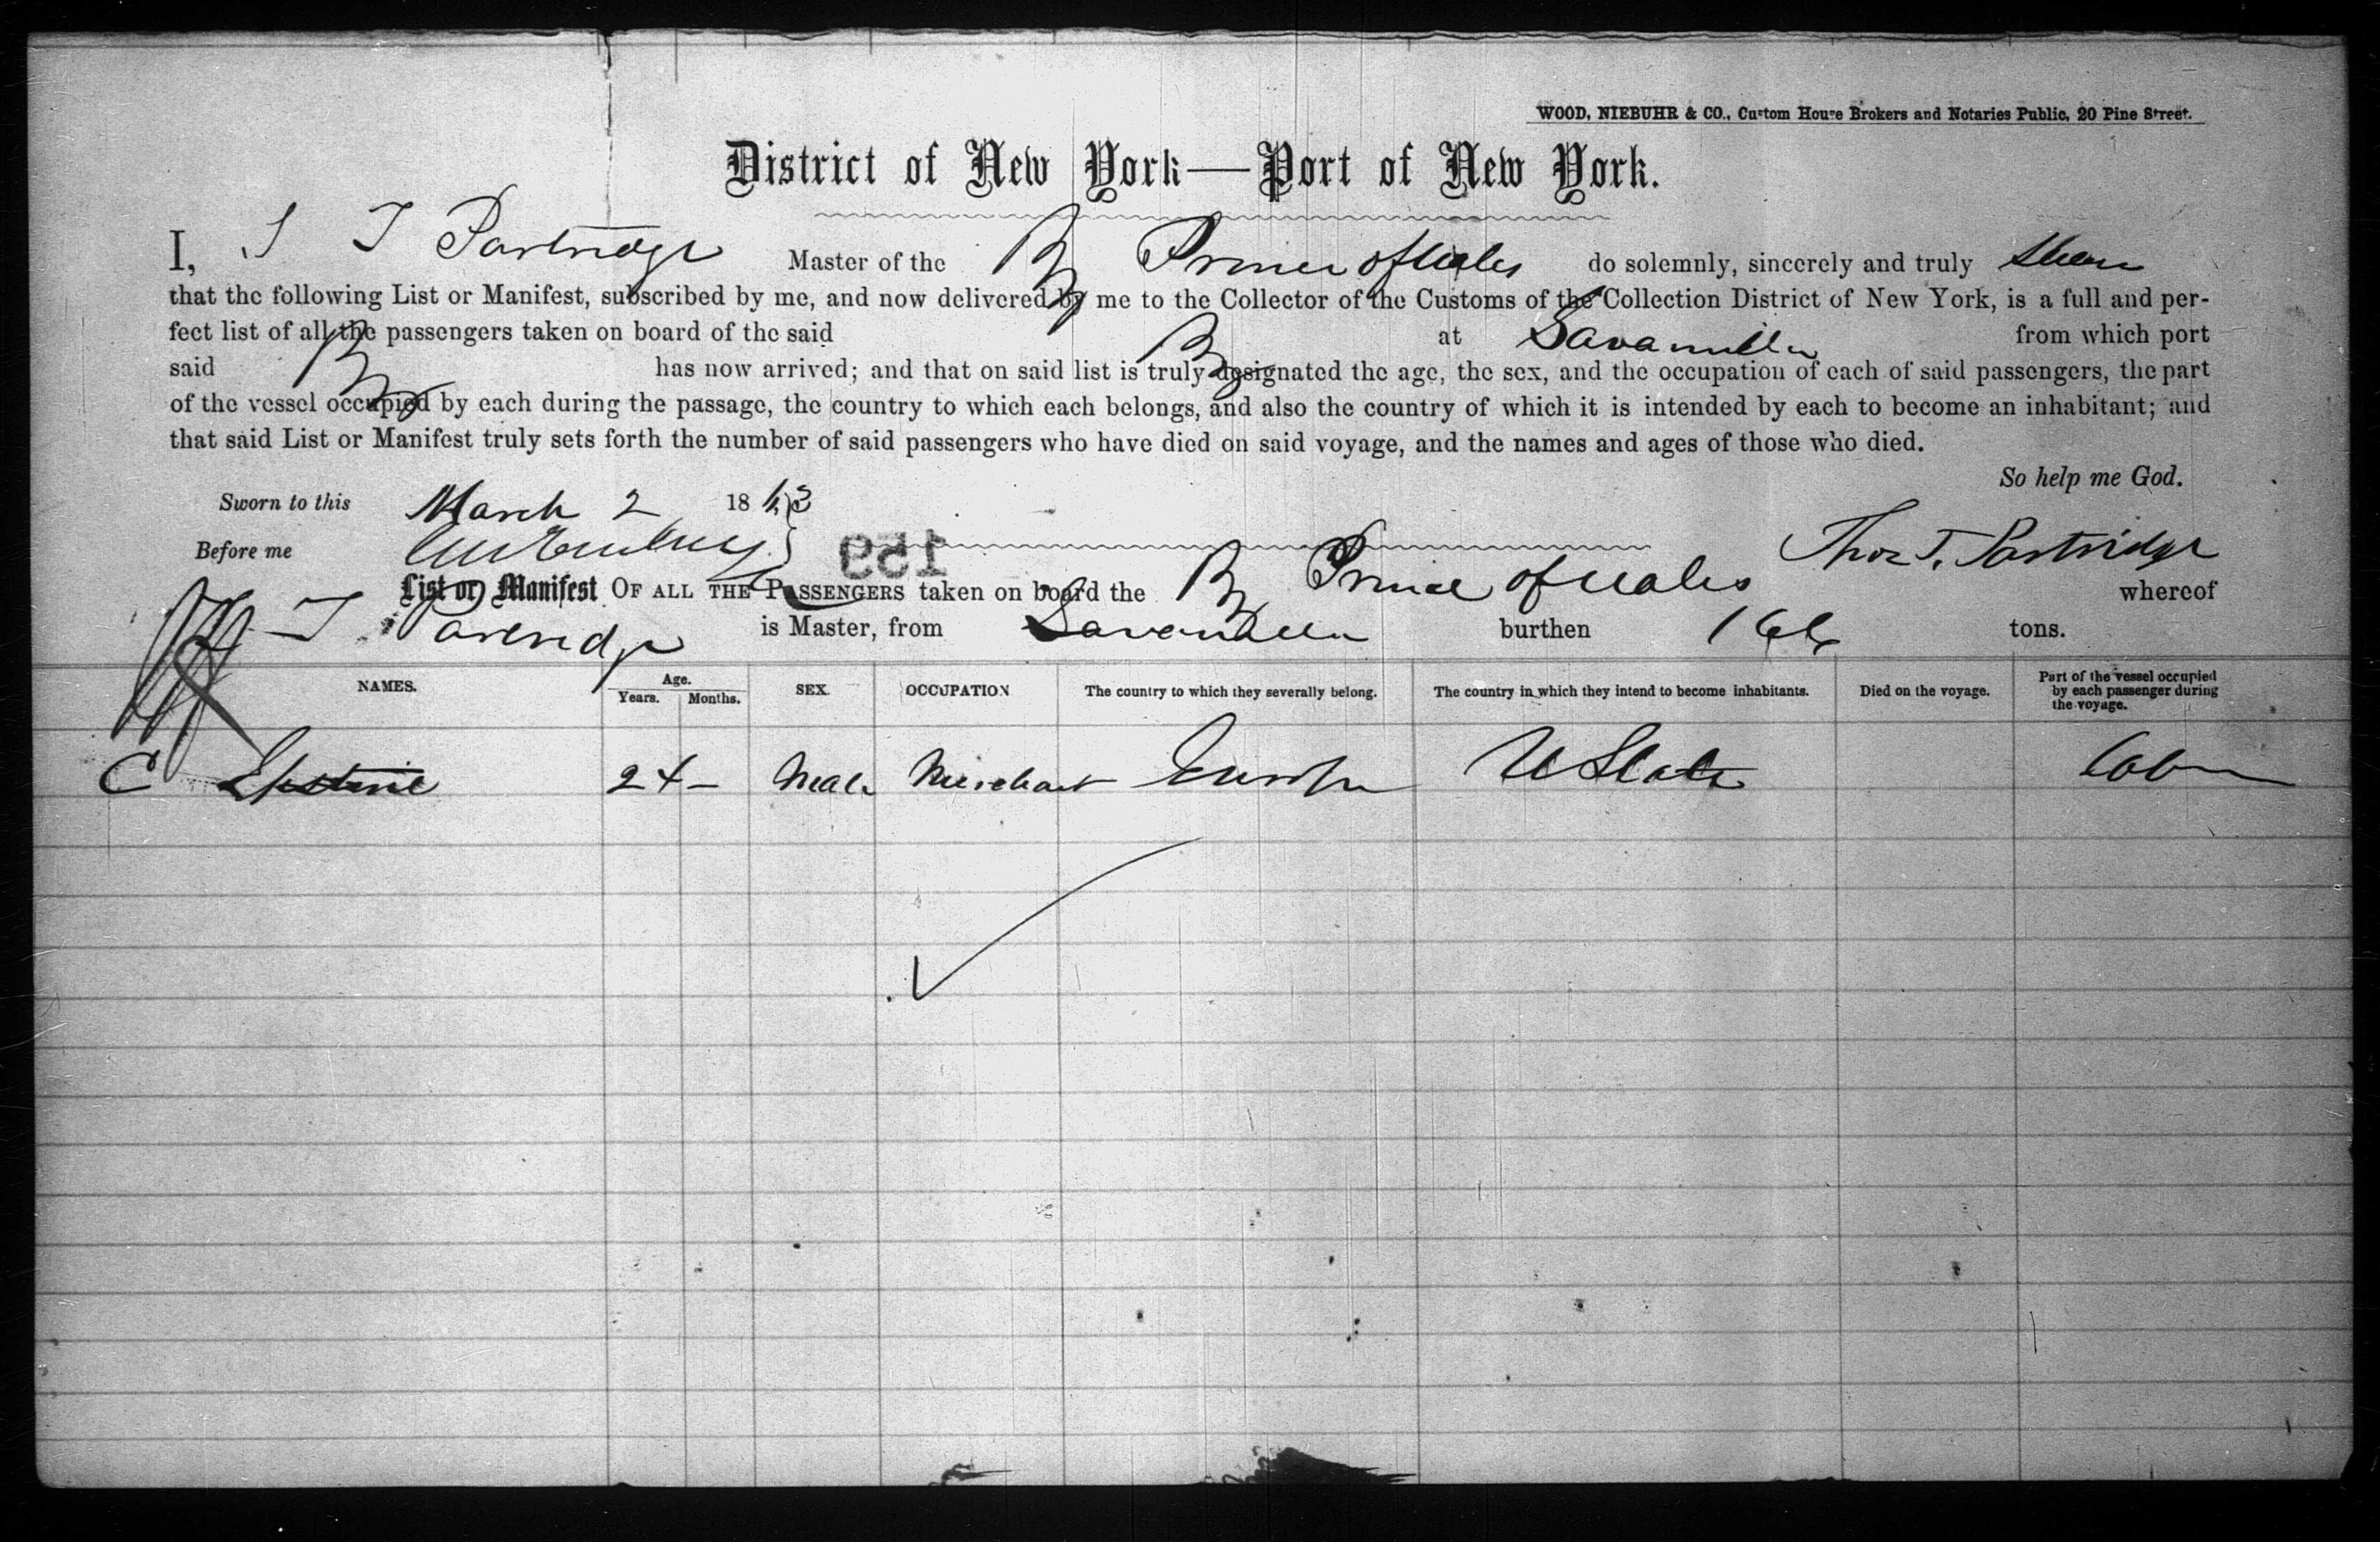 WOOD, NIEBUHR & CO., Custom House Brokers and Notaries Public, 20 Pine Street.
District of New York—Port of New York.
I, T Partridge Master of the Bg Prince of Wales do solemnly, sincerely and truly swear
that the following List or Manifest, subscribed by me, and now delivered by me to the Collector of the Customs of the Collection District of New York, is a full and per-
fect list of all the passengers taken on board of the said Bg at Savanilla from which port
said Bg has now arrived; and that on said list is truly designated the age, the sex, and the occupation of each of said passengers, the part
of the vessel occupied by each during the passage, the country to which each belongs, and also the country of which it is intended by each to become an inhabitant; and
that said List or Manifest truly sets forth the number of said passengers who have died on said voyage, and the names and ages of those who died.
So help me God.
Sworn to this March 2 1863
Before me
Thos T. Partridge
159
List or Manifest OF ALL THE PASSENGERS taken on board the Bg Prince of Wales whereof
T Partridge is Master, from Savanilla burthen 166 tons.
NAMES. Age. Years. Months. SEX. OCCUPATION The country to which they severally belong. The country in which they intend to become inhabitants. Died on the voyage. Part of the vessel occupied by each passenger during the voyage.
C Epstine 24 – Male Merchant Europe U States Cabin